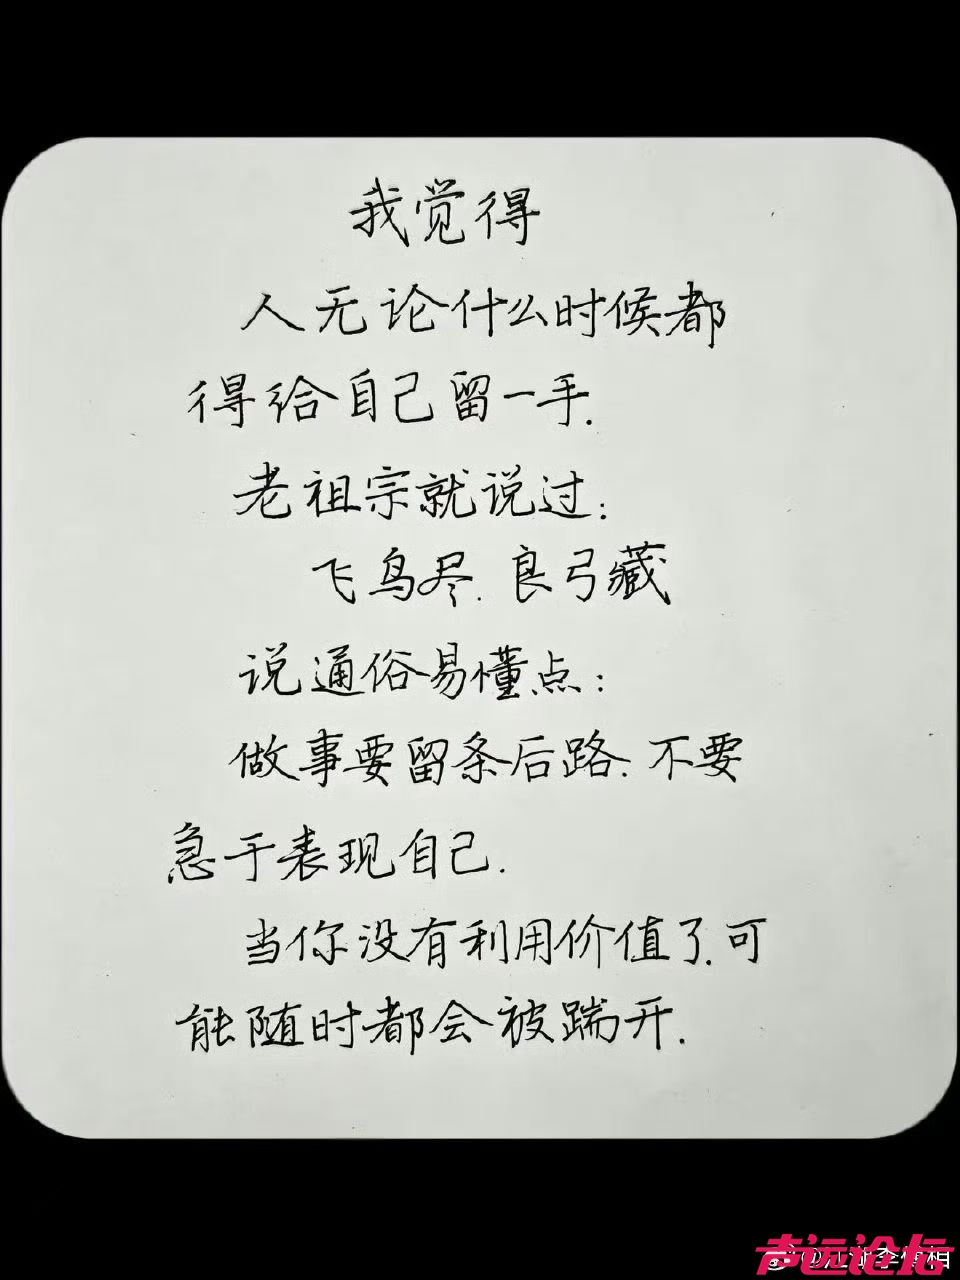 我觉得
人无论什么时候都
得给自己留一手.
老祖宗就说过:
飞鸟尽.良弓藏
说通俗易懂点:
做事要留条后路.不要
急于表现自己.
当你没有利用价值了.可
能随时都会被踹开.
声远论坛